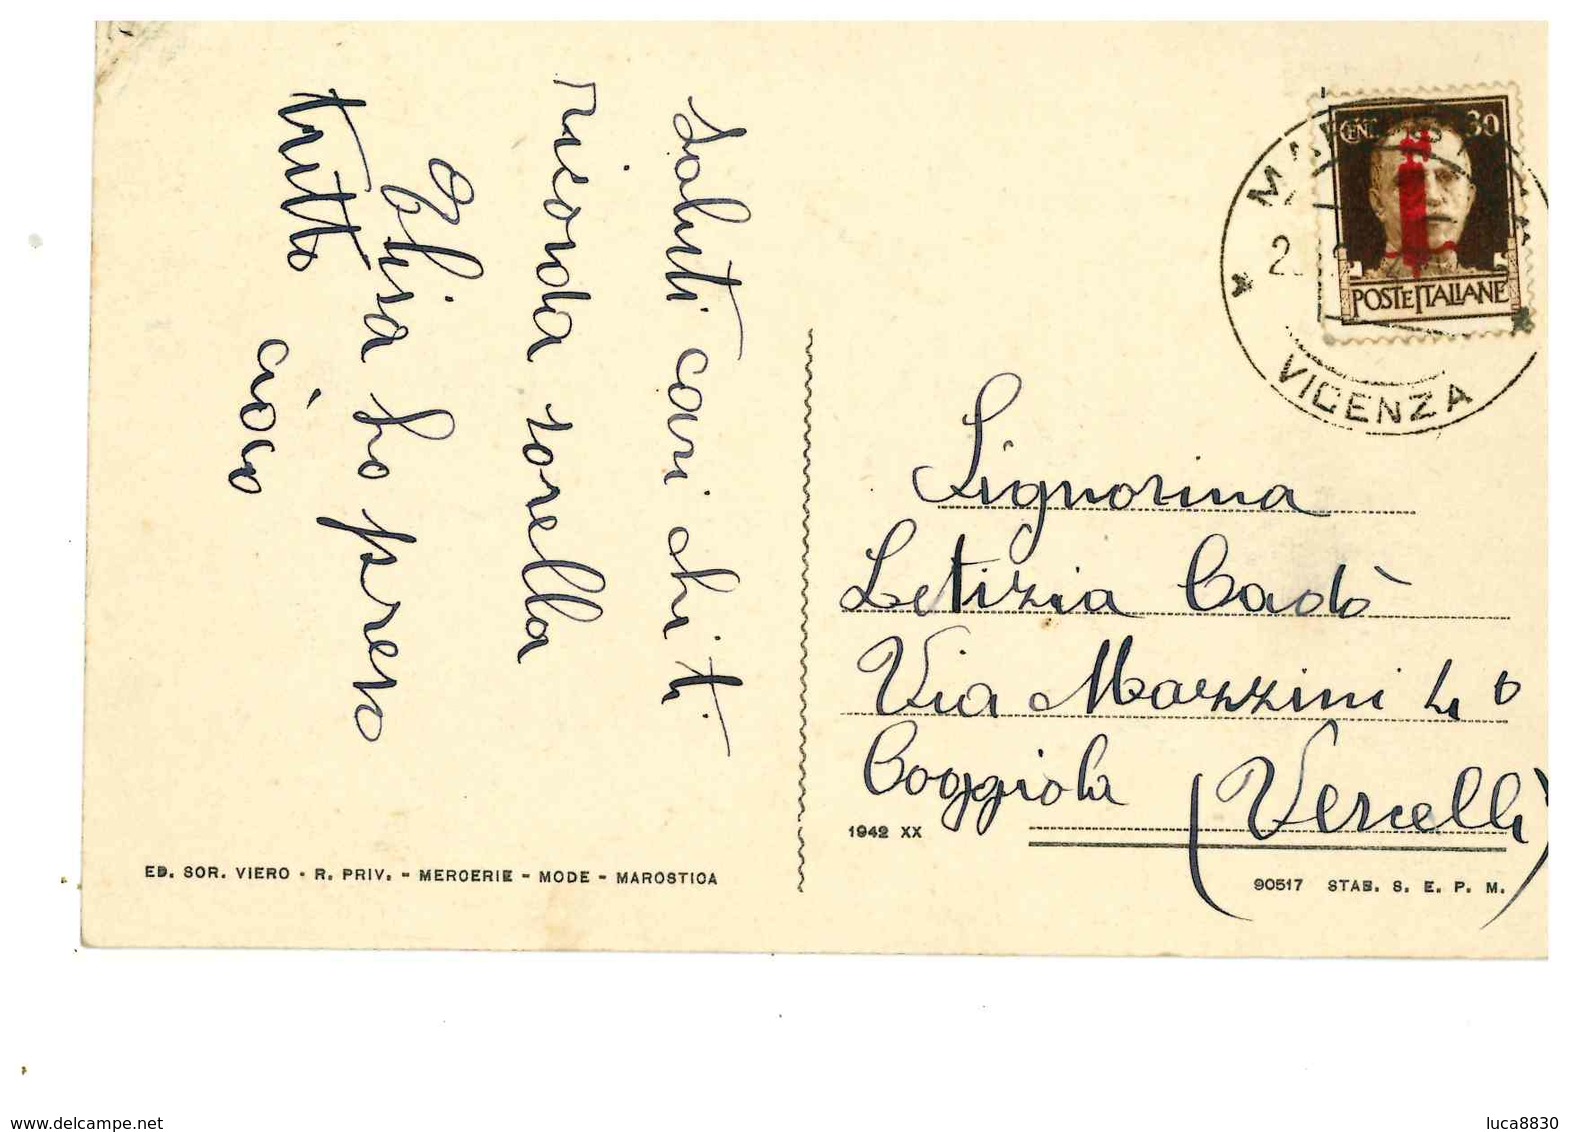 Saluti cari chi ti
ricorda sorella
Elisa ho preso
tutto
ciao
CENT 30
POSTE ITALIANE
VICENZA
Signorina
Letizia Cadò
Via Mazzini
Coggiola (Vercelli)
1942 XX
ED. SOR. VIERO - R. PRIV. - MERCERIE - MODE - MAROSTICA
90517 STAB. S. E. P. M.
www.delcampe.net
luca8830